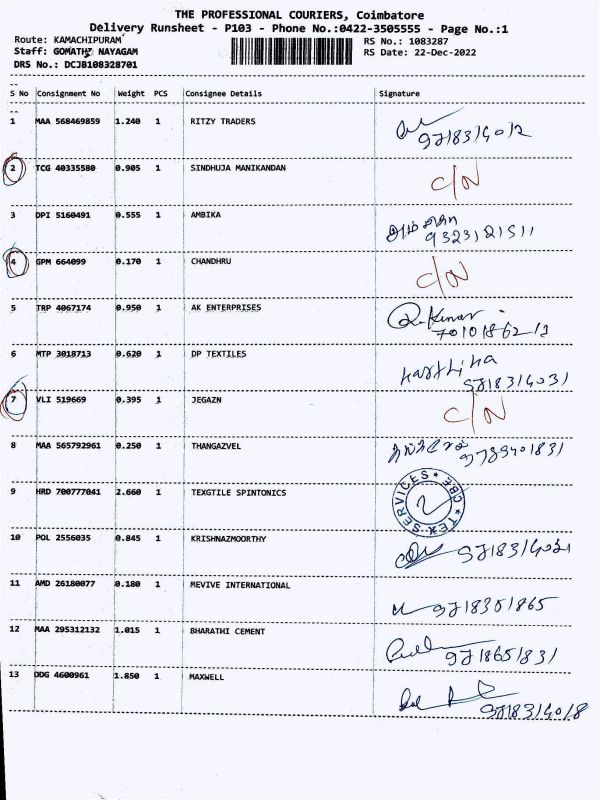 THE PROFESSIONAL COURIERS, Coimbatore
Delivery Runsheet - P103 - Phone No.:0422-3505555 - Page No.:1
Route: KAMACHIPURAM RS No.: 1083287
Staff: GOMATHI NAYAGAM RS Date: 22-Dec-2022
DRS No.: DCJB108328701
--
S No Consignment No Weight PCS Consignee Details Signature
--
1 MAA 568469859 1.240 1 RITZY TRADERS
2 TCG 40335580 0.905 1 SINDHUJA MANIKANDAN C/N
3 DPI 5160491 0.555 1 AMBIKA
4 GPM 664099 0.170 1 CHANDHRU C/N
5 TRP 4067174 0.950 1 AK ENTERPRISES R. Kumar
6 MTP 3018713 0.620 1 DP TEXTILES
7 VLI 519669 0.395 1 JEGAZN C/N
8 MAA 565792961 0.250 1 THANGAZVEL
9 HRD 700777041 2.660 1 TEXGTILE SPINTONICS TEX SERVICES * CBE *
10 POL 2556035 0.845 1 KRISHNAZMOORTHY
11 AMD 26180077 0.180 1 MEVIVE INTERNATIONAL
12 MAA 295312132 1.015 1 BHARATHI CEMENT
13 DDG 4600961 1.850 1 MAXWELL